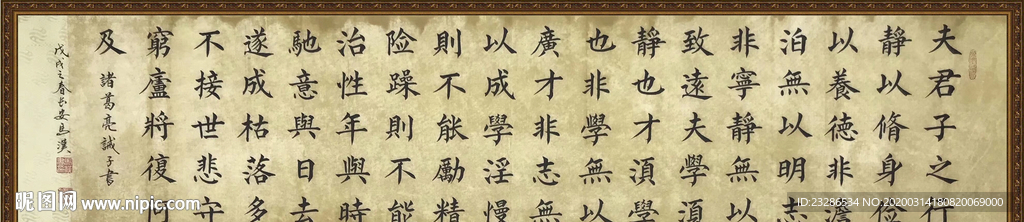 夫君子之行
静以脩身俭
以養德非澹
泊無以明志
非寧静無以
致遠夫學湏
静也才湏學
也非學無以
廣才非志無
以成學淫慢
則不能勵精
险躁則不能
治性年與時
馳意與日去
遂成枯落多
不接世悲守
窮廬將復何
及
諸葛亮誡子書
戊戌之春
昵图网 www.nipic.com
ID:23286534 NO:20200314180820069000